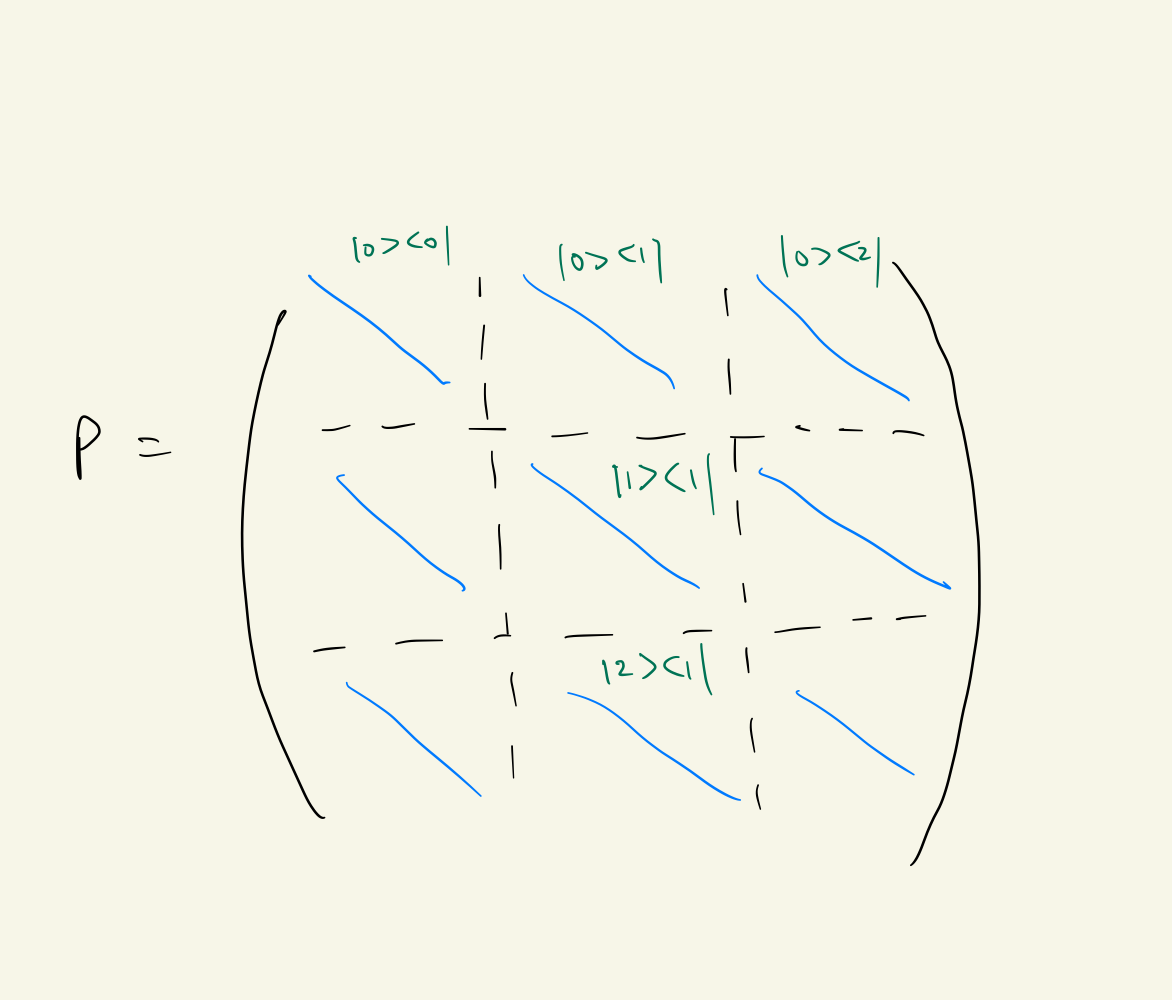 |0><0| |0><1| |0><2|
P =
|1><1|
|2><1|